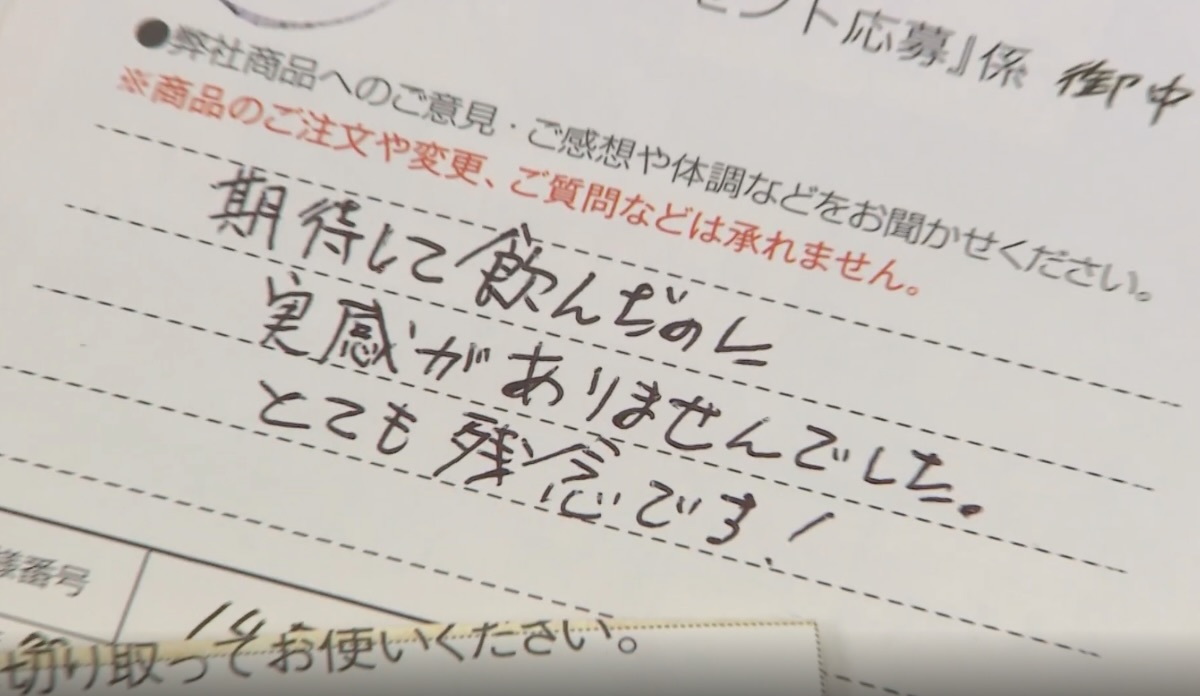 ント応募』係 御中
●弊社商品へのご意見・ご感想や体調などをお聞かせください。
※商品のご注文や変更、ご質問などは承れません。
期待して飲んだのに
実感がありませんでした。
とても残念です!
様番号
切り取ってお使いください。